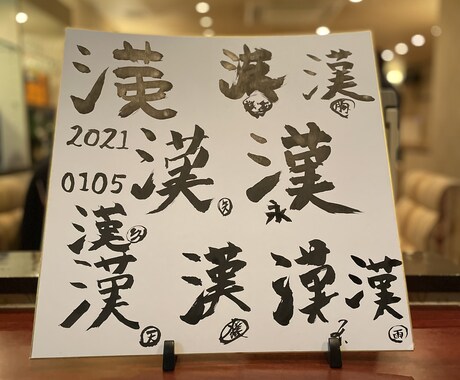 漢 漢 漢
2021 漢 漢
永
0105
漢
漢 漢 漢 漢
天 雨